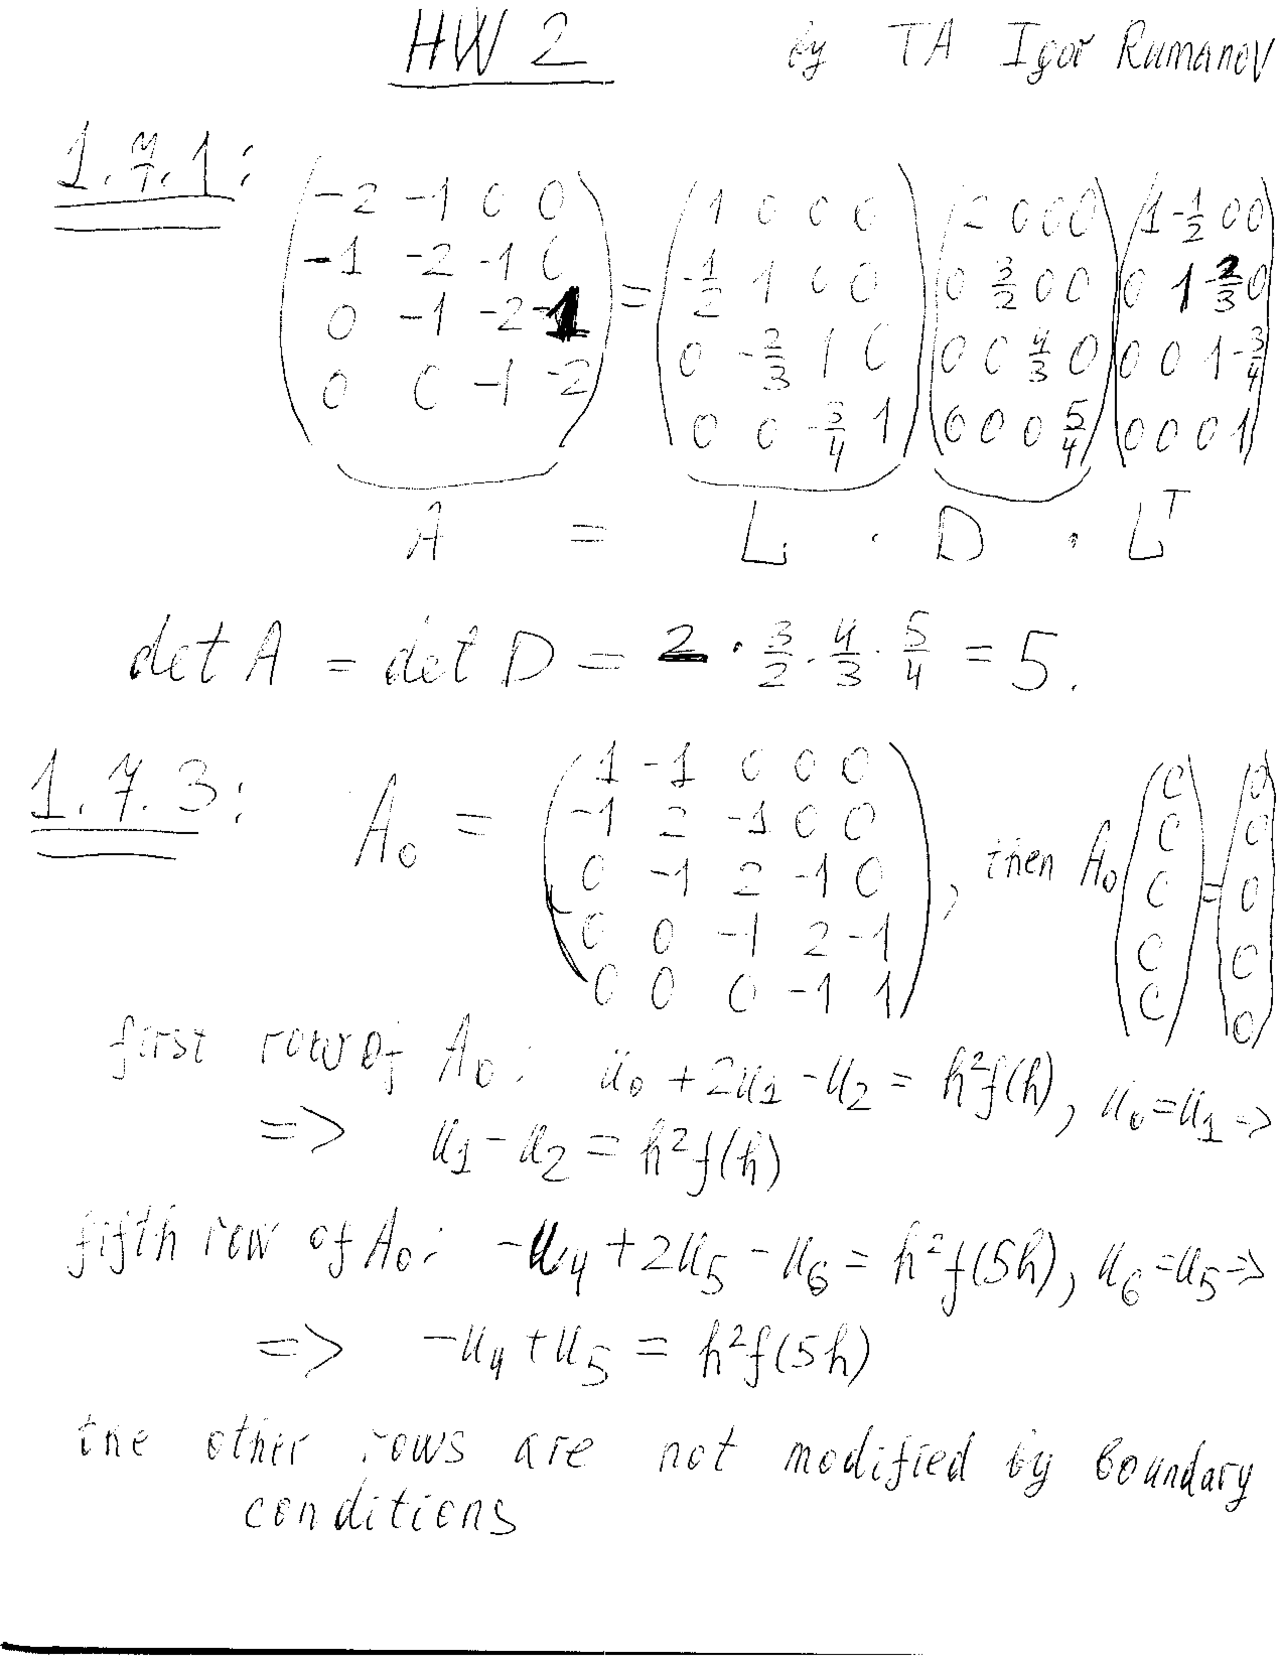 HW 2 by TA Igor Rumanov
1.7.1: $\begin{pmatrix} -2 & -1 & 0 & 0 \\ -1 & -2 & -1 & 0 \\ 0 & -1 & -2 & -1 \\ 0 & 0 & -1 & -2 \end{pmatrix} = \begin{pmatrix} 1 & 0 & 0 & 0 \\ -\frac{1}{2} & 1 & 0 & 0 \\ 0 & -\frac{2}{3} & 1 & 0 \\ 0 & 0 & -\frac{3}{4} & 1 \end{pmatrix} \begin{pmatrix} 2 & 0 & 0 & 0 \\ 0 & \frac{3}{2} & 0 & 0 \\ 0 & 0 & \frac{4}{3} & 0 \\ 0 & 0 & 0 & \frac{5}{4} \end{pmatrix} \begin{pmatrix} 1 & -\frac{1}{2} & 0 & 0 \\ 0 & 1 & -\frac{2}{3} & 0 \\ 0 & 0 & 1 & -\frac{3}{4} \\ 0 & 0 & 0 & 1 \end{pmatrix}$
A = L · D · L^T
det A = det D = 2 · 3/2 · 4/3 · 5/4 = 5.
1.7.3: $A_0 = \begin{pmatrix} 1 & -1 & 0 & 0 & 0 \\ -1 & 2 & -1 & 0 & 0 \\ 0 & -1 & 2 & -1 & 0 \\ 0 & 0 & -1 & 2 & -1 \\ 0 & 0 & 0 & -1 & 1 \end{pmatrix}$, then $A_0 \begin{pmatrix} c \\ c \\ c \\ c \\ c \end{pmatrix} = \begin{pmatrix} 0 \\ 0 \\ 0 \\ 0 \\ 0 \end{pmatrix}$
first row of A₀: u₀ + 2u₁ - u₂ = h²f(h), u₀ = u₁ =>
=> u₁ - u₂ = h²f(h)
fifth row of A₀: -u₄ + 2u₅ - u₆ = h²f(5h), u₆ = u₅ =>
=> -u₄ + u₅ = h²f(5h)
the other rows are not modified by boundary
conditions